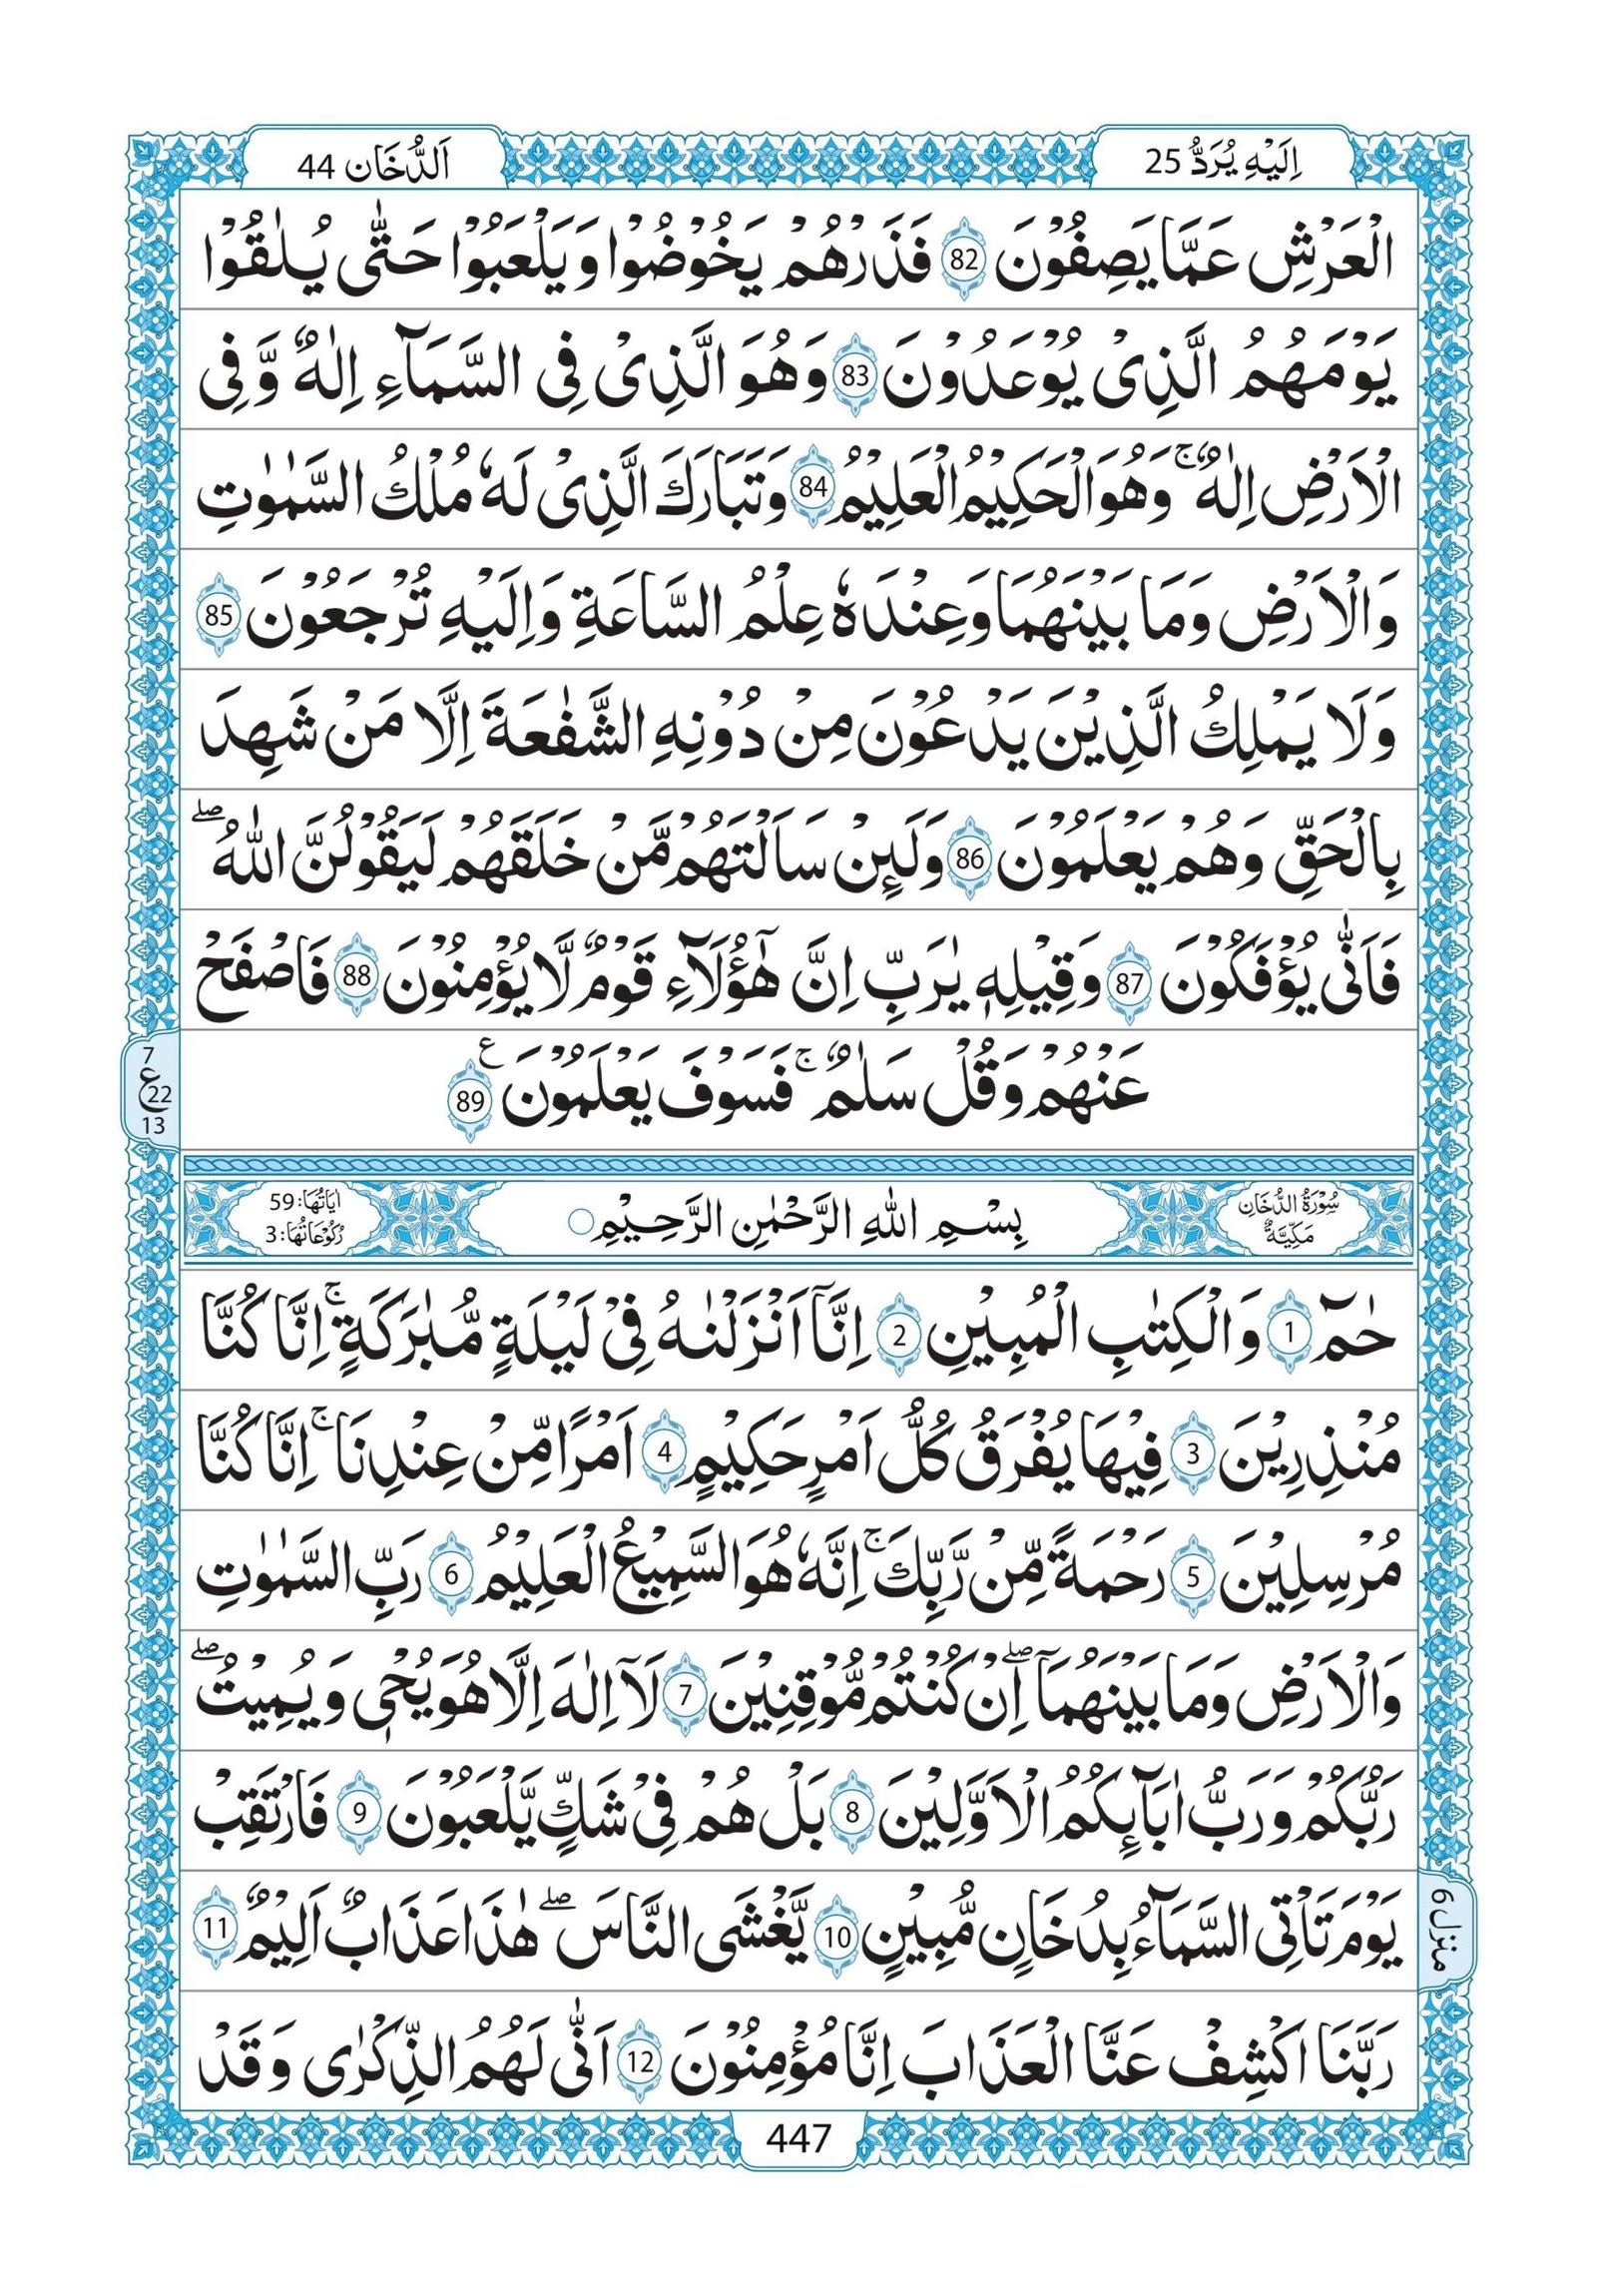 اِلَيْهِ يُرَدُّ 25
اَلدُّخَان 44
الْعَرْشِ عَمَّا يَصِفُوْنَ 82 فَذَرْهُمْ يَخُوْضُوْا وَيَلْعَبُوْا حَتّٰى يُلٰقُوْا
يَوْمَهُمُ الَّذِىْ يُوْعَدُوْنَ 83 وَهُوَ الَّذِىْ فِى السَّمَآءِ اِلٰهٌ وَّفِى
الْاَرْضِ اِلٰهٌ ۚ وَهُوَ الْحَكِيْمُ الْعَلِيْمُ 84 وَتَبَارَكَ الَّذِىْ لَهٗ مُلْكُ السَّمٰوٰتِ
وَالْاَرْضِ وَمَا بَيْنَهُمَا وَعِنْدَهٗ عِلْمُ السَّاعَةِ وَاِلَيْهِ تُرْجَعُوْنَ 85
وَلَا يَمْلِكُ الَّذِيْنَ يَدْعُوْنَ مِنْ دُوْنِهِ الشَّفٰعَةَ اِلَّا مَنْ شَهِدَ
بِالْحَقِّ وَهُمْ يَعْلَمُوْنَ 86 وَلَىِٕنْ سَاَلْتَهُمْ مَّنْ خَلَقَهُمْ لَيَقُوْلُنَّ اللّٰهُ ۖ
فَاَنّٰى يُؤْفَكُوْنَ 87 وَقِيْلِهٖ يٰرَبِّ اِنَّ هٰٓؤُلَآءِ قَوْمٌ لَّا يُؤْمِنُوْنَ 88 فَاصْفَحْ
عَنْهُمْ وَقُلْ سَلٰمٌ ۚ فَسَوْفَ يَعْلَمُوْنَ ع 89
7
ع 22
13
سُوْرَةُ الدُّخَانِ مَكِّيَّةٌ
بِسْمِ اللّٰهِ الرَّحْمٰنِ الرَّحِيْمِ ○
اٰيَاتُهَا: 59
رُكُوْعَاتُهَا: 3
حٰمٓ 1 وَالْكِتٰبِ الْمُبِيْنِ 2 اِنَّآ اَنْزَلْنٰهُ فِىْ لَيْلَةٍ مُّبٰرَكَةٍ ۚ اِنَّا كُنَّا
مُنْذِرِيْنَ 3 فِيْهَا يُفْرَقُ كُلُّ اَمْرٍ حَكِيْمٍ 4 اَمْرًا مِّنْ عِنْدِنَا ۚ اِنَّا كُنَّا
مُرْسِلِيْنَ 5 رَحْمَةً مِّنْ رَّبِّكَ ۚ اِنَّهٗ هُوَ السَّمِيْعُ الْعَلِيْمُ 6 رَبِّ السَّمٰوٰتِ
وَالْاَرْضِ وَمَا بَيْنَهُمَآ ۖ اِنْ كُنْتُمْ مُّوْقِنِيْنَ 7 لَآ اِلٰهَ اِلَّا هُوَ يُحْىٖ وَيُمِيْتُ ۖ
رَبُّكُمْ وَرَبُّ اٰبَآىِٕكُمُ الْاَوَّلِيْنَ 8 بَلْ هُمْ فِىْ شَكٍّ يَّلْعَبُوْنَ 9 فَارْتَقِبْ
يَوْمَ تَاْتِى السَّمَآءُ بِدُخَانٍ مُّبِيْنٍ 10 يَّغْشَى النَّاسَ ۖ هٰذَا عَذَابٌ اَلِيْمٌ 11
منزل 6
رَبَّنَا اكْشِفْ عَنَّا الْعَذَابَ اِنَّا مُؤْمِنُوْنَ 12 اَنّٰى لَهُمُ الذِّكْرٰى وَقَدْ
447